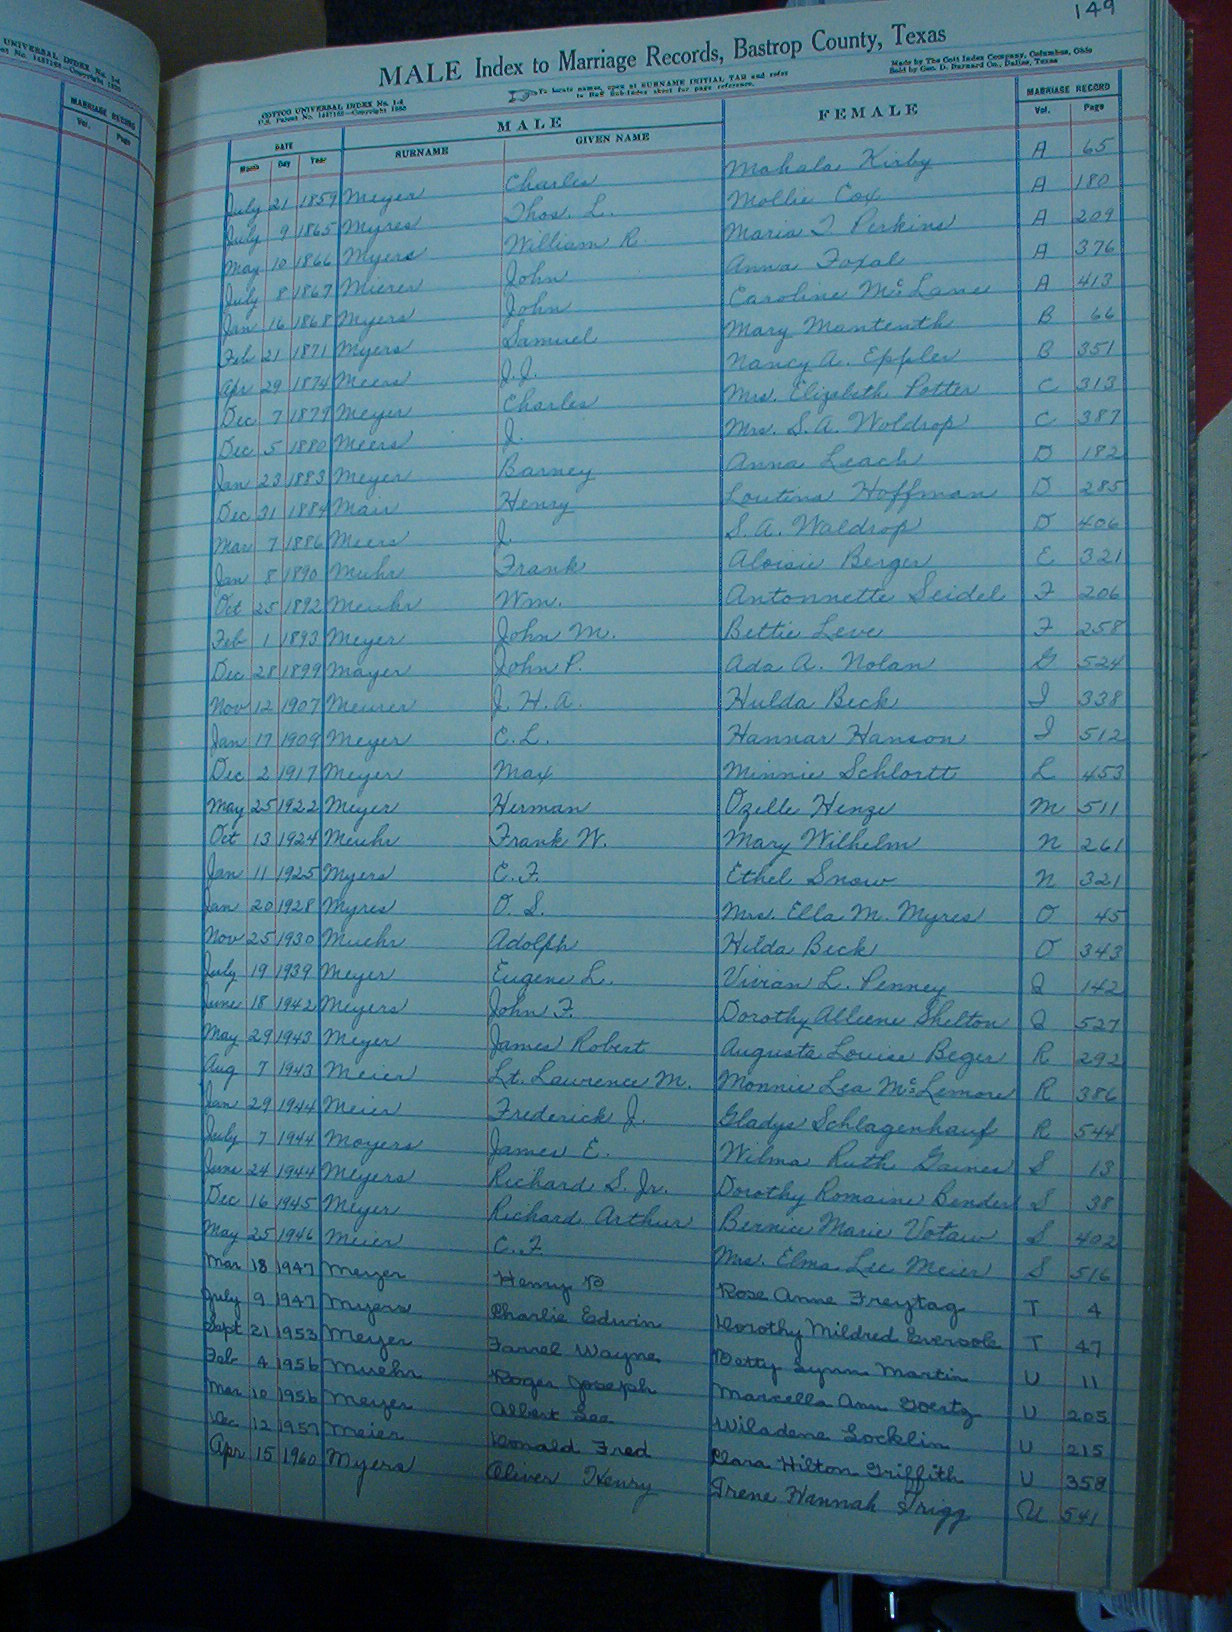 149
MALE Index to Marriage Records, Bastrop County, Texas
UNIVERSAL INDEX No. 1-d
COTTCO UNIVERSAL INDEX No. 1-d
U.S. Patent No. 1487168—Copyright
To locate names, open at SURNAME INITIAL TAB and refer
to Sub-Index sheet for page reference.
Made by The Cott Index Company, Columbus, Ohio
Sold by Geo. D. Barnard Co., Dallas, Texas
MARRIAGE RECORD
Vol. Page
DATE MALE FEMALE MARRIAGE RECORD
Month Day Year SURNAME GIVEN NAME Vol. Page
July 21 1859 Meyer Charles Mahala Kirby A 65
July 9 1865 Myres Thos. L. Mollie Cox A 180
May 10 1866 Myers William R. Maria T Perkins A 209
July 8 1867 Mierer John Anna Foxal A 376
Jan 16 1868 Myers John Caroline McLane A 413
Feb 21 1871 Myers Samuel Mary Mantenth B 66
Apr 29 1874 Meers J.J. Nancy A. Eppler B 351
Dec 7 1879 Meyer Charles Mrs. Elizabeth Potter C 313
Dec 5 1880 Meers J. Mrs. S.A. Woldrop C 387
Jan 23 1883 Meyer Barney Anna Leach D 182
Dec 31 1884 Mair Henry Loutina Hoffman D 285
Mar 7 1886 Meers J. S.A. Waldrop D 406
Jan 8 1890 Muhr Frank Aloisie Berger E 321
Oct 25 1892 Meuhr Wm. Antonnette Seidel F 206
Feb 1 1893 Meyer John M. Bettie Leve F 258
Dec 28 1899 Mayer John P. Ada A. Nolan G 524
Nov 12 1907 Meurer J. H. A. Hulda Beck I 338
Jan 17 1909 Meyer C. L. Hannar Hanson I 512
Dec 2 1917 Meyer Max Minnie Schlortt L 453
May 25 1922 Meyer Herman Ozelle Henze M 511
Oct 13 1924 Meuhr Frank W. Mary Wilhelm N 261
Jan 11 1925 Myers E. F. Ethel Snow N 321
Jan 20 1928 Myres O. S. Mrs. Ella M. Myres O 45
Nov 25 1930 Muehr Adolph Hilda Beck O 343
July 19 1939 Meyer Eugene L. Vivian L. Penney Q 142
June 18 1942 Meyers John F. Dorothy Alleene Shelton Q 527
May 29 1943 Meyer James Robert Augusta Louise Beger R 292
Aug 7 1943 Meier Lt. Lawrence M. Monnie Lea McLemore R 386
Jan 29 1944 Meier Frederick J. Gladys Schlagenhauf R 544
July 7 1944 Moyers James E. Wilma Ruth Gaines S 13
June 24 1944 Meyers Richard S. Jr. Dorothy Romaine Bender S 38
Dec 16 1945 Meyer Richard Arthur Bernice Marie Votaw S 402
May 25 1946 Meier C. F. Mrs. Elma Lee Meier S 516
Mar 18 1947 Meyer Henry Rose Anne Freytag T 4
July 9 1947 Myers Charlie Edwin Dorothy Mildred Eversole T 47
Sept 21 1953 Meyer Farrel Wayne Betty Lynn Martin U 11
Feb 4 1956 Muehr Roger Joseph Marcella Ann Goertz U 205
Mar 10 1956 Meyer Albert Lee Wiladene Locklin U 215
Dec 12 1957 Meier Donald Fred Clara Hilton Griffith U 358
Apr 15 1960 Myers Oliver Henry Irene Hannah Trigg U 541